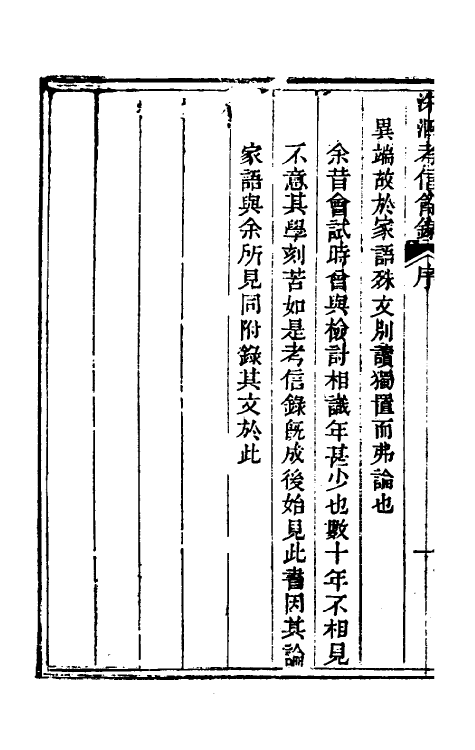 洙泗考信餘錄 序 十
異端故於家語殊文别讀獨置而弗論也
余昔會試時曾與檢討相識年甚少也數十年不相見
不意其學刻苦如是考信錄旣成後始見此書因其論
家語與余所見同附錄其文於此